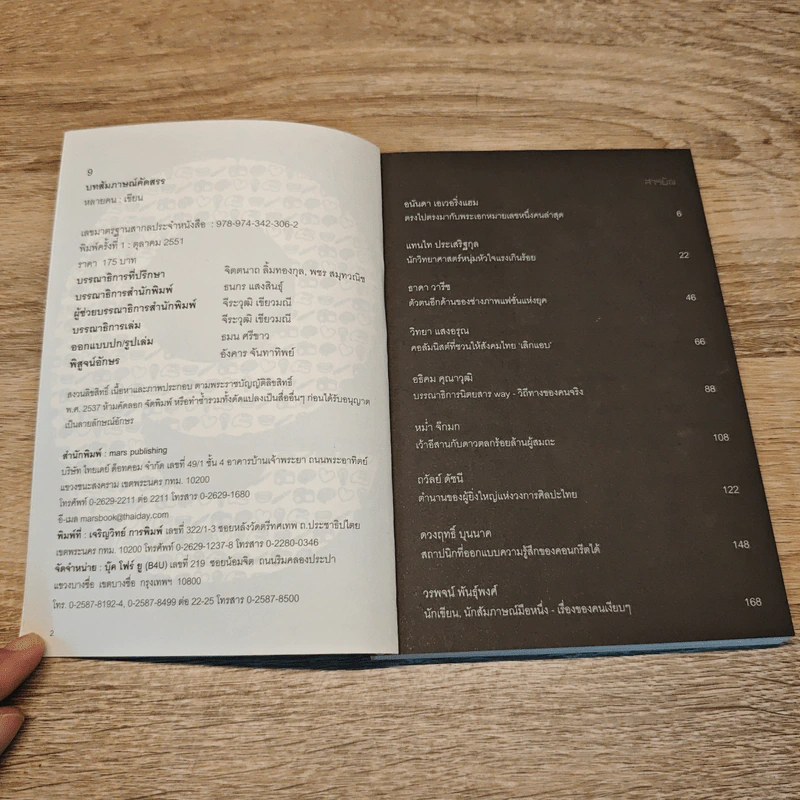 9
บทสัมภาษณ์คัดสรร
หลายคน : เขียน
เลขมาตรฐานสากลประจำหนังสือ : 978-974-342-306-2
พิมพ์ครั้งที่ 1 : ตุลาคม 2551
ราคา 175 บาท
บรรณาธิการที่ปรึกษา จิตตนาถ ลิ้มทองกุล, พชร สมุทวณิช
บรรณาธิการสำนักพิมพ์ ธนกร แสงสินธุ์
ผู้ช่วยบรรณาธิการสำนักพิมพ์ จีระวุฒิ เขียวมณี
บรรณาธิการเล่ม จีระวุฒิ เขียวมณี
ออกแบบปก/รูปเล่ม ธมน ศรีขาว
พิสูจน์อักษร อังคาร จันทาทิพย์
สงวนลิขสิทธิ์ เนื้อหาและภาพประกอบ ตามพระราชบัญญัติลิขสิทธิ์
พ.ศ. 2537 ห้ามคัดลอก จัดพิมพ์ หรือทำซ้ำรวมทั้งดัดแปลงเป็นสื่ออื่นๆ ก่อนได้รับอนุญาต
เป็นลายลักษณ์อักษร
สำนักพิมพ์ : mars publishing
บริษัท ไทยเดย์ ด็อทคอม จำกัด เลขที่ 49/1 ชั้น 4 อาคารบ้านเจ้าพระยา ถนนพระอาทิตย์
แขวงชนะสงคราม เขตพระนคร กทม. 10200
โทรศัพท์ 0-2629-2211 ต่อ 2211 โทรสาร 0-2629-1680
อี-เมล marsbook@thaiday.com
พิมพ์ที่ : เจริญวิทย์ การพิมพ์ เลขที่ 322/1-3 ซอยหลังวัดตรีทศเทพ ถ.ประชาธิปไตย
เขตพระนคร กทม. 10200 โทรศัพท์ 0-2629-1237-8 โทรสาร 0-2280-0346
จัดจำหน่าย : บุ๊ค โฟร์ ยู (B4U) เลขที่ 219 ซอยน้อมจิต ถนนริมคลองประปา
แขวงบางซื่อ เขตบางซื่อ กรุงเทพฯ 10800
โทร. 0-2587-8192-4, 0-2587-8499 ต่อ 22-25 โทรสาร 0-2587-8500
2
สารบัญ
อนันดา เอเวอริ่งแฮม
ตรงไปตรงมากับพระเอกหมายเลขหนึ่งคนล่าสุด 6
แทนไท ประเสริฐกุล
นักวิทยาศาสตร์หนุ่มหัวใจแรงเกินร้อย 22
ธาดา วารีช
ตัวตนอีกด้านของช่างภาพแฟชั่นแห่งยุค 46
วิทยา แสงอรุณ
คอลัมนิสต์ที่ชวนให้สังคมไทย 'เลิกแอบ' 66
อธิคม คุณาวุฒิ
บรรณาธิการนิตยสาร way - วิถีทางของคนจริง 88
หม่ำ จ๊กมก
เว้าอีสานกับดาวตลกร้อยล้านผู้สมถะ 108
ถวัลย์ ดัชนี
ตำนานของผู้ยิ่งใหญ่แห่งวงการศิลปะไทย 122
ดวงฤทธิ์ บุนนาค
สถาปนิกที่ออกแบบความรู้สึกของคอนกรีตได้ 148
วรพจน์ พันธุ์พงศ์
นักเขียน, นักสัมภาษณ์มือหนึ่ง - เรื่องของคนเงียบๆ 168